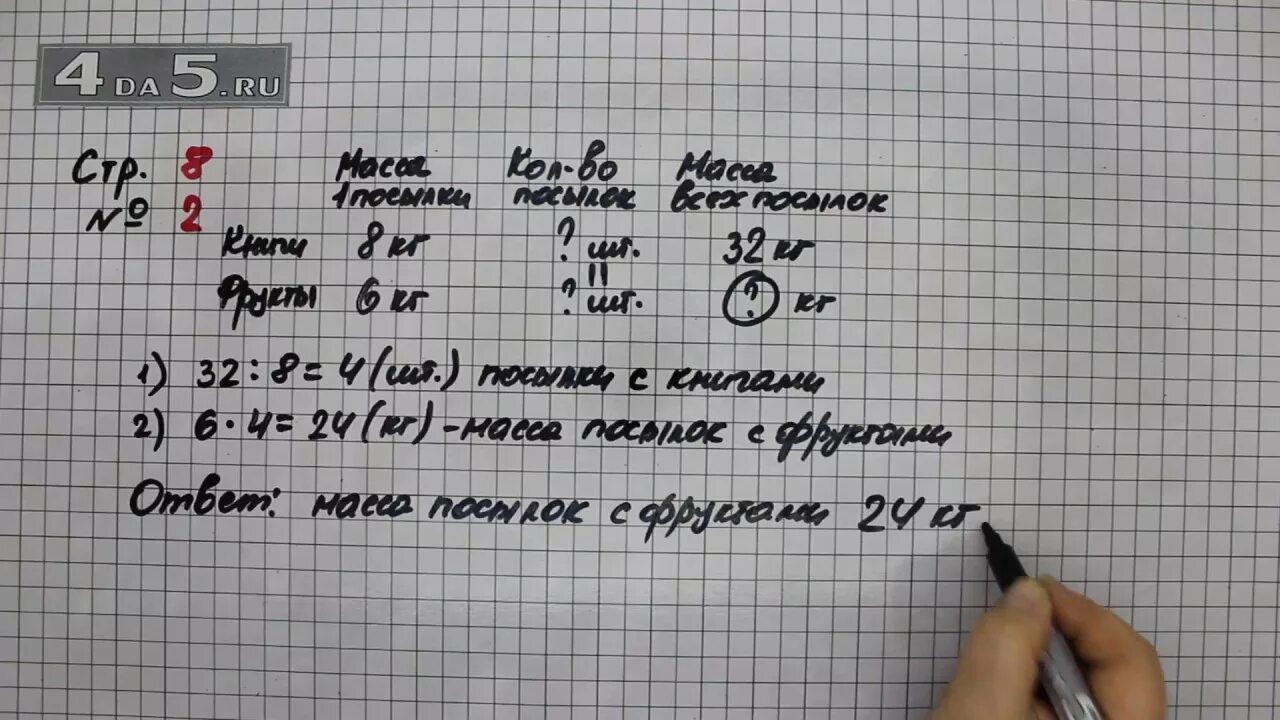 4DA5.RU
Стр. 8 Масса Кол-во Масса
№ 2 1 посылки посылок всех посылок
Книги 8 кг ? шт. 32 кг
||
Фрукты 6 кг ? шт. ? кг
1) 32 : 8 = 4 (шт.) посылки с книгами
2) 6 · 4 = 24 (кг) - масса посылок с фруктами
Ответ: масса посылок с фруктами 24 кг